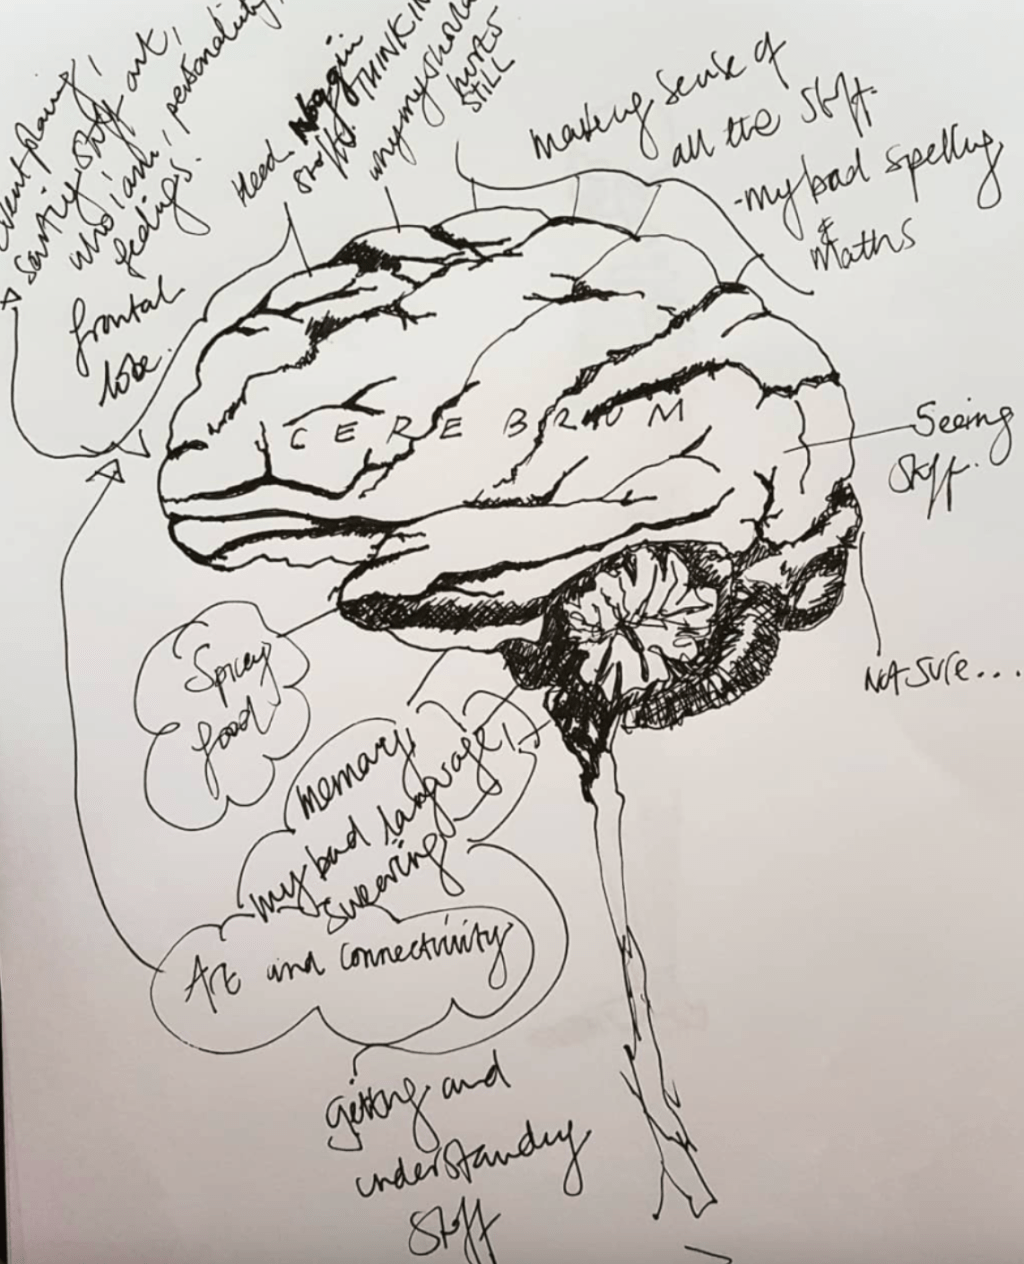 Event planning,
sorting stuff art,
who i am, personality,
feelings.
frontal
lobe.
Head Noggin
stuff. THINKIN
why my shoulder
hurts
STILL
making sense of
all the stuff.
-my bad spelling
&
Maths
CEREBRUM
Seeing
stuff.
NOT SURE...
Spicey
food
memory,
my bad language,
swearing
Art and connectivity
getting and
understanding
stuff